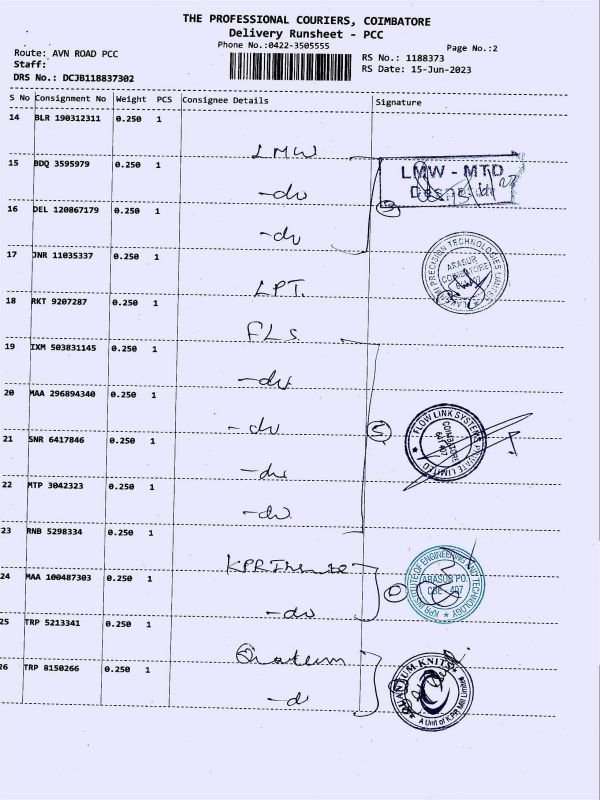 THE PROFESSIONAL COURIERS, COIMBATORE
Delivery Runsheet - PCC
Phone No.:0422-3505555
Page No.:2
Route: AVN ROAD PCC
RS No.: 1188373
Staff:
RS Date: 15-Jun-2023
DRS No.: DCJB118837302
S No Consignment No Weight PCS Consignee Details Signature
14 BLR 190312311 0.250 1
LMW
15 BDQ 3595979 0.250 1
LMW - MTD
-do
16 DEL 120867179 0.250 1
3
-do
17 JNR 11035337 0.250 1
LAKSHMI PRECISION TECHNOLOGIES LIMITED
ARASUR
COIMBATORE
LPT.
18 RKT 9207287 0.250 1
FLS
19 IXM 503831145 0.250 1
-do
20 MAA 296894340 0.250 1
-do
5
FLOW LINK SYSTEMS PRIVATE LIMITED
COIMBATORE
641 407
21 SNR 6417846 0.250 1
-do
22 MTP 3042323 0.250 1
-do
23 RNB 5298334 0.250 1
KPR
24 MAA 100487303 0.250 1
KPR INSTITUTE OF ENGINEERING AND TECHNOLOGY
ARASUR PO.
CBE - 407
-do
25 TRP 5213341 0.250 1
Quantum
26 TRP 8150266 0.250 1
QUANTUM KNITS
A Unit of K.P.R. Mill Limited
-do